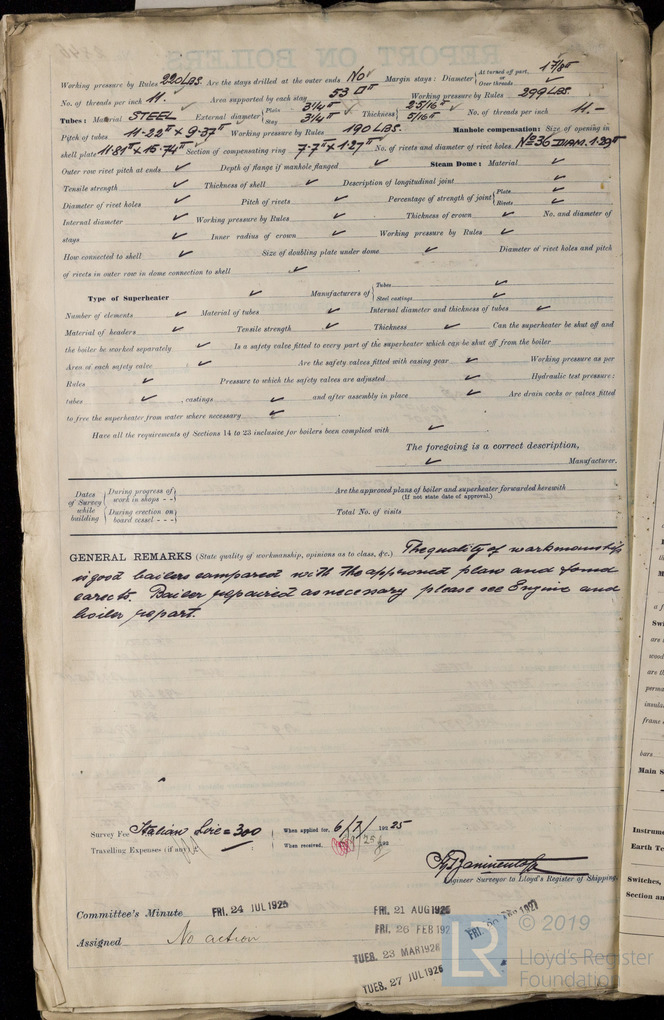 Working pressure by Rules 220 LBS. Are the stays drilled at the outer ends No ✓ Margin stays: Diameter { At turned off part, or Over threads 1 7/8" ✓
No. of threads per inch 11. Area supported by each stay 53 □" Working pressure by Rules 299 LBS.
Tubes: Material STEEL External diameter { Plain 3 1/4" Stay 3 1/4" Thickness { 25/16" 5/16" No. of threads per inch 11.-
Pitch of tubes 11.22" x 9.37" Working pressure by Rules 190 LBS. Manhole compensation: Size of opening in
shell plate 11.81" x 15.74" Section of compensating ring 7.7" x 1.27" No. of rivets and diameter of rivet holes No 36 DIAM. 1.39"
Outer row rivet pitch at ends ✓ Depth of flange if manhole flanged ✓ Steam Dome: Material ✓
Tensile strength ✓ Thickness of shell ✓ Description of longitudinal joint ✓
Diameter of rivet holes ✓ Pitch of rivets ✓ Percentage of strength of joint { Plate ✓ Rivets ✓
Internal diameter ✓ Working pressure by Rules ✓ Thickness of crown ✓ No. and diameter of
stays ✓ Inner radius of crown ✓ Working pressure by Rules ✓
How connected to shell ✓ Size of doubling plate under dome ✓ Diameter of rivet holes and pitch
of rivets in outer row in dome connection to shell ✓
Type of Superheater ✓ Manufacturers of { Tubes ✓ Steel castings ✓
Number of elements ✓ Material of tubes ✓ Internal diameter and thickness of tubes ✓
Material of headers ✓ Tensile strength ✓ Thickness ✓ Can the superheater be shut off and
the boiler be worked separately ✓ Is a safety valve fitted to every part of the superheater which can be shut off from the boiler
Area of each safety valve ✓ Are the safety valves fitted with easing gear ✓ Working pressure as per
Rules ✓ Pressure to which the safety valves are adjusted ✓ Hydraulic test pressure:
tubes ✓ , castings ✓ and after assembly in place ✓ Are drain cocks or valves fitted
to free the superheater from water where necessary ✓
Have all the requirements of Sections 14 to 23 inclusive for boilers been complied with ✓
The foregoing is a correct description,
✓ Manufacturer.
Dates of Survey while building { During progress of work in shops - - } Are the approved plans of boiler and superheater forwarded herewith (If not state date of approval.)
{ During erection on board vessel - - - } Total No. of visits
GENERAL REMARKS (State quality of workmanship, opinions as to class, &c.) The quality of workmanship
is good boilers compared with the approved plan and found
corects. Boiler repaired as necessary please see Engine and
boiler report.
Survey Fee Italian Lire = 300 When applied for, 6/7/1925
Travelling Expenses (if any) £ When received, 192
Engineer Surveyor to Lloyd's Register of Shipping.
Committee's Minute FRI. 24 JUL 1925 FRI. 21 AUG 1925
FRI. 26 FEB 192
Assigned No action
TUES. 23 MAR 1926
TUES. 27 JUL 1926
© 2019
LR Lloyd's Register
Foundation
wood
are th
perma
insula
frame
bars
Main S
Instrum
Earth Te
Switches,
Section an